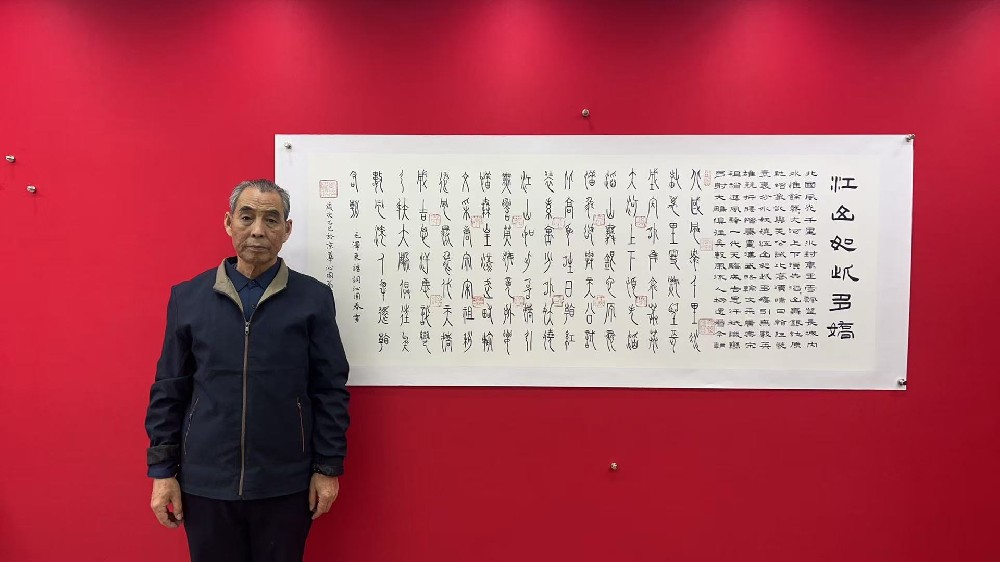 江山如此多嬌
北國風光千里冰封萬里雪飄望長城內
外惟餘莽莽大河上下頓失滔滔山舞銀蛇原
馳蠟象欲與天公試比高須晴日看紅裝
素裹分外妖嬈江山如此多嬌引無數英
雄競折腰惜秦皇漢武略輸文采唐宗宋
祖稍遜風騷一代天驕成吉思汗只識彎
弓射大雕俱往矣數風流人物還看今朝
北國風光千里冰
封萬里雪飄望長
城內外惟餘莽莽
大河上下頓失滔
滔山舞銀蛇原馳
蠟象欲與天公試
比高須晴日看紅
裝素裹分外妖嬈
江山如此多嬌引
無數英雄競折腰
惜秦皇漢武略輸
文采唐宗宋祖稍
遜風騷一代天驕
成吉思汗只識彎
弓射大雕俱往矣
數風流人物還看
今朝
毛澤東詩詞沁園春雪
歲次乙巳於京華沁園